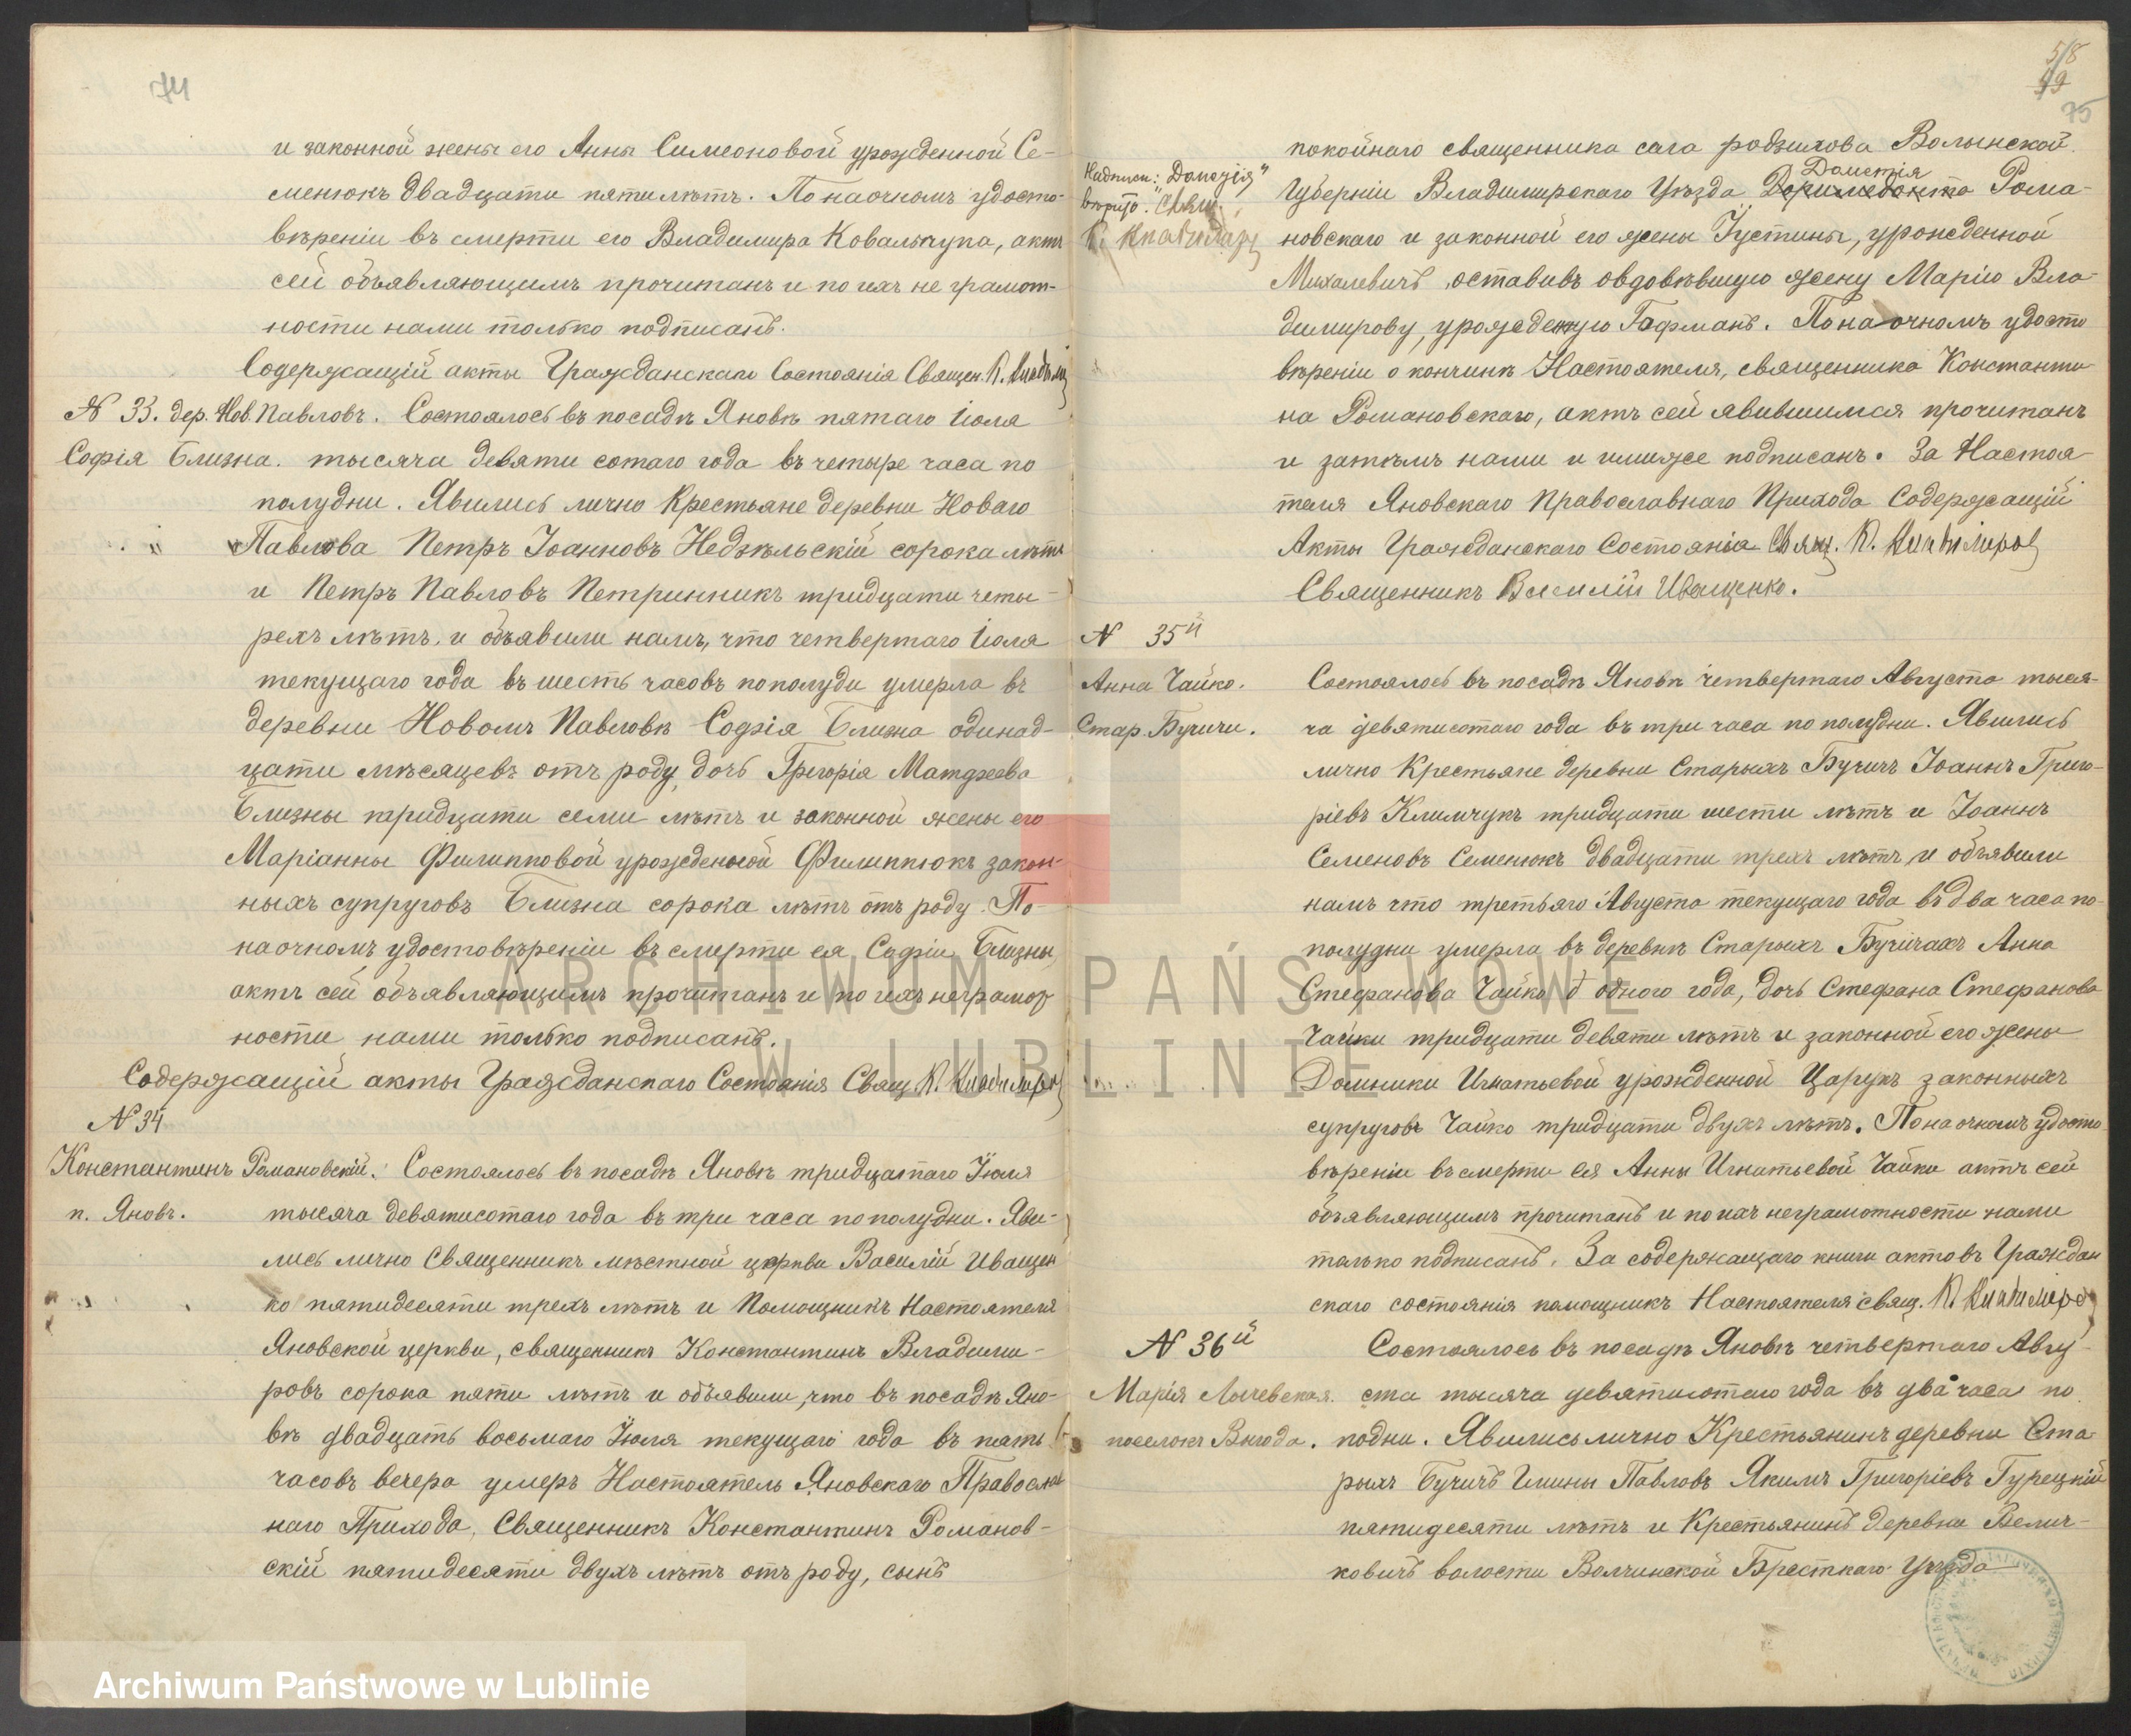 74
и законной жены его Анны Симеоновой урожденной Се-
менюкъ двадцати пяти лѣтъ. По наочномъ удосто-
вѣреніи въ смерти его Владимира Ковальчука, актъ
сей объявляющимъ прочитанъ и по ихъ не грамот-
ности нами только подписанъ.
Содержащій акты Гражданскаго Состоянія Священ. К.
N 33. дер. Нов. Павловъ. Состоялось въ посадѣ Яновѣ пятаго Іюля
Софія Близна. тысяча девяти сотаго года въ четыре часа по
полудни. Явились лично Крестьяне деревни Новаго
Павлова Петръ Іоанновъ Недзѣльскій сорока лѣтъ
и Петръ Павловъ Петринникъ тридцати четы-
рехъ лѣтъ, и объявили намъ, что четвертаго Іюля
текущаго года въ шесть часовъ пополуди умерла въ
деревни Новомъ Павловѣ Софія Близна одинад-
цати мѣсяцевъ отъ роду, дочь Григорія Матфеева
Близны тридцати семи лѣтъ и законной жены его
Маріанны Филипповой урожденной Филиппюкъ закон-
ныхъ супруговъ Близна сорока лѣтъ отъ роду. По-
наочномъ удостовѣреніи въ смерти ея Софіи Близны,
актъ сей объявляющимъ прочитанъ и по ихъ неграмот
ности нами только подписанъ.
Содержащій акты Гражданскаго Состоянія Свящ. К.
N 34
Константинъ Романовскій. Состоялось въ посадѣ Яновѣ тридцатаго Іюля
п. Яновъ. тысяча девятисотаго года въ три часа пополудни. Яви-
лись лично Священникъ мѣстной церкви Василій Иващен
ко пятидесяти трехъ лѣтъ и Помощникъ Настоятеля
Яновской церкви, священникъ Константинъ Владими-
ровъ сорока пяти лѣтъ и объявили, что въ посадѣ Яно-
вѣ двадцать восьмаго Іюля текущаго года въ пять
часовъ вечера умеръ Настоятель Яновскаго Православ
наго Прихода, Священникъ Константинъ Романов-
скій пятидесяти двухъ лѣтъ отъ роду, сынъ
58
59
75
покойнаго священника села Волынской
Надписи: Дометія"
Дометія
Губерніи Владимирскаго Уѣзда Дориме­донта Рома-
вѣрно. Свящ.
новскаго и законной его жены Іустины, урожденной
Михалевичъ, оставивъ овдовѣвшую жену Марію Вла-
димирову, урожденную Гофманъ. По наочномъ удосто
вѣреніи о кончинѣ Настоятеля, священника Константи
на Романовскаго, актъ сей явившимся прочитанъ
и затѣмъ нами и ими же подписанъ. За Настоя-
теля Яновскаго Православнаго Прихода Содержащій
Акты Гражданскаго Состоянія Свящ. К.
Священникъ Василій Иващенко.
N 35й
Анна Чайко. Состоялось въ посадѣ Яновѣ четвертаго Августа тыся-
Стар. Бучичи. ча девятисотаго года въ три часа по полудни. Явились
лично Крестьяне деревни Старыхъ Бучичъ Іоаннъ Григо-
ріевъ Климчукъ тридцати шести лѣтъ и Іоаннъ
Семеновъ Семенюкъ двадцати трехъ лѣтъ, и объявили
намъ что третьяго Августа текущаго года въ два часа по-
полудни умерла въ деревнѣ Старыхъ Бучичахъ Анна
Стефанова Чайко одного года, дочь Стефана Стефанова
Чайки тридцати девяти лѣтъ и законной его жены
Домники Игнатьевой урожденной Царукъ законныхъ
супруговъ Чайко тридцати двухъ лѣтъ. По наочномъ удосто
вѣреніи въ смерти ея Анны Игнатьевой Чайки актъ сей
объявляющимъ прочитанъ и по ихъ неграмотности нами
только подписанъ. За содержащаго книги актовъ Граждан
скаго состоянія помощникъ Настоятеля свящ. К.
N 36й Состоялось въ посадѣ Яновѣ четвертаго Авгу-
Марія Лычевская. ста тысяча девятисотаго года въ два часа по
поселокъ Выгода. подни. Явились лично Крестьянинъ деревни Ста-
рыхъ Бучичъ Гмины Павловъ Якимъ Григоріевъ Гурецкій
пятидесяти лѣтъ и Крестьянинъ деревни Велич-
ковичъ волости Волчинской Брестскаго Уѣзда
ARCHIWUM PAŃSTWOWE
W LUBLINIE
Archiwum Państwowe w Lublinie